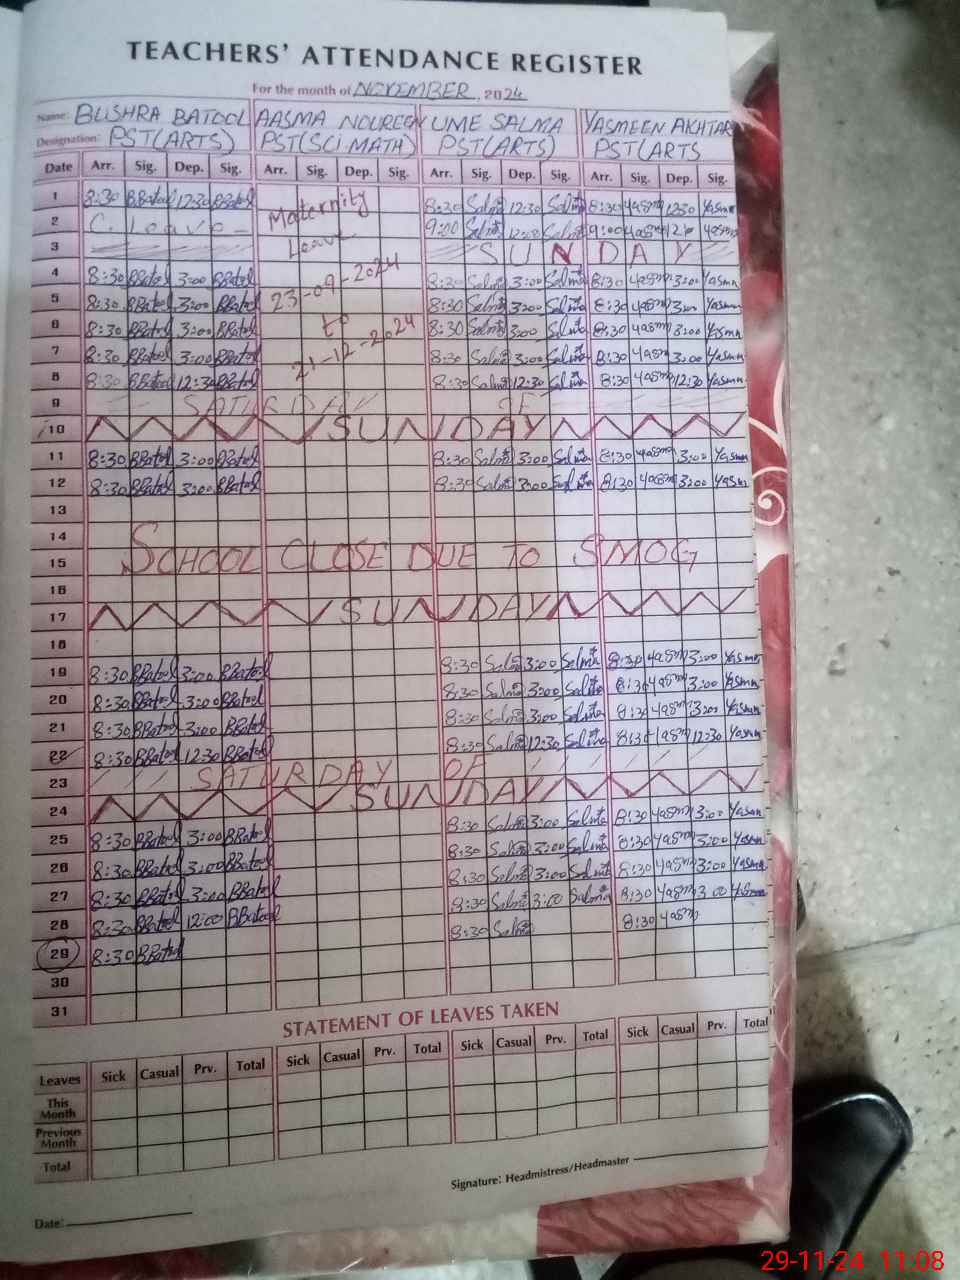 TEACHERS' ATTENDANCE REGISTER
For the month of NOVEMBER, 2024
Name: BUSHRA BATOOL AASMA NOUREEN UME SALMA YASMEEN AKHTAR
Designation: PST(ARTS) PST(SCI-MATH) PST(ARTS) PST(ARTS
Date Arr. Sig. Dep. Sig. Arr. Sig. Dep. Sig. Arr. Sig. Dep. Sig. Arr. Sig. Dep. Sig.
1 8:30 BBatool 12:30 BBatool Maternity 8:30 Salma 12:30 Salma 8:30 Yasmn 12:30 Yasmn
2 C. Leave - Leave 9:00 Salma Salma 9:00 Yasmn Yasmn
3 SUNDAY
4 8:30 BBatool 3:00 BBatool 23-09-2024 8:30 Salma 3:00 Salma 8:30 Yasmn 3:00 Yasmn
5 8:30 BBatool 3:00 BBatool to 8:30 Salma 3:00 Salma 8:30 Yasmn 3:00 Yasmn
6 8:30 BBatool 3:00 BBatool 21-12-2024 8:30 Salma 3:00 Salma 8:30 Yasmn 3:00 Yasmn
7 8:30 BBatool 3:00 BBatool 8:30 Salma 3:00 Salma 8:30 Yasmn 3:00 Yasmn
8 8:30 BBatool 12:30 BBatool 8:30 Salma 12:30 Salma 8:30 Yasmn 12:30 Yasmn
9 SATURDAY OF
10 SUNDAY
11 8:30 BBatool 3:00 BBatool 8:30 Salma 3:00 Salma 8:30 Yasmn 3:00 Yasmn
12 8:30 BBatool 3:00 BBatool 8:30 Salma 3:00 Salma 8:30 Yasmn 3:00 Yasmn
13
14
15 SCHOOL CLOSE DUE TO SMOG
16
17 SUNDAY
18
19 8:30 BBatool 3:00 BBatool 8:30 Salma 3:00 Salma 8:30 Yasmn 3:00 Yasmn
20 8:30 BBatool 3:00 BBatool 8:30 Salma 3:00 Salma 8:30 Yasmn 3:00 Yasmn
21 8:30 BBatool 3:00 BBatool 8:30 Salma 3:00 Salma 8:30 Yasmn 3:00 Yasmn
22 8:30 BBatool 12:30 BBatool 8:30 Salma 12:30 Salma 8:30 Yasmn 12:30 Yasmn
23 SATURDAY OF
24 SUNDAY
25 8:30 BBatool 3:00 BBatool 8:30 Salma 3:00 Salma 8:30 Yasmn 3:00 Yasmn
26 8:30 BBatool 3:00 BBatool 8:30 Salma 3:00 Salma 8:30 Yasmn 3:00 Yasmn
27 8:30 BBatool 3:00 BBatool 8:30 Salma 3:00 Salma 8:30 Yasmn 3:00 Yasmn
28 8:30 BBatool 12:00 BBatool 8:30 Salma 3:00 Salma 8:30 Yasmn 3:00 Yasmn
29 8:30 BBatool 8:30 Salma 8:30 Yasmn
30
31
STATEMENT OF LEAVES TAKEN
Leaves Sick Casual Prv. Total Sick Casual Prv. Total Sick Casual Prv. Total Sick Casual Prv. Total
This Month
Previous Month
Total
Signature: Headmistress/Headmaster
Date:
29-11-24 11:08